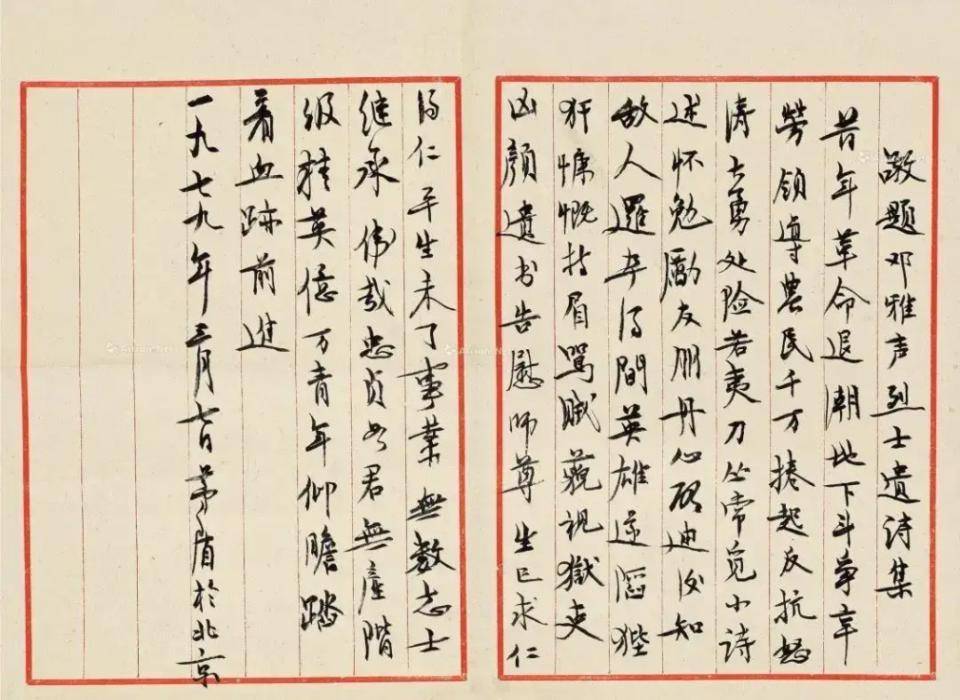 敬题邓雅声烈士遗诗集
昔年革命退潮地下斗争辛
劳领导农民千万捲起反抗怒
涛大勇处险若夷刀丛常觅小诗
述怀勉励友朋丹心启迪后知
敌人逻卒得间英雄遂陷狴
犴慷慨持眉骂贼藐视獄吏
凶颜遗书告慰师尊生已求仁
得仁平生未了事業無数志士
继承偉哉忠贞如君無産階
级精英億万青年仰瞻踏
着血跡前进
一九七九年三月七日茅盾於北京